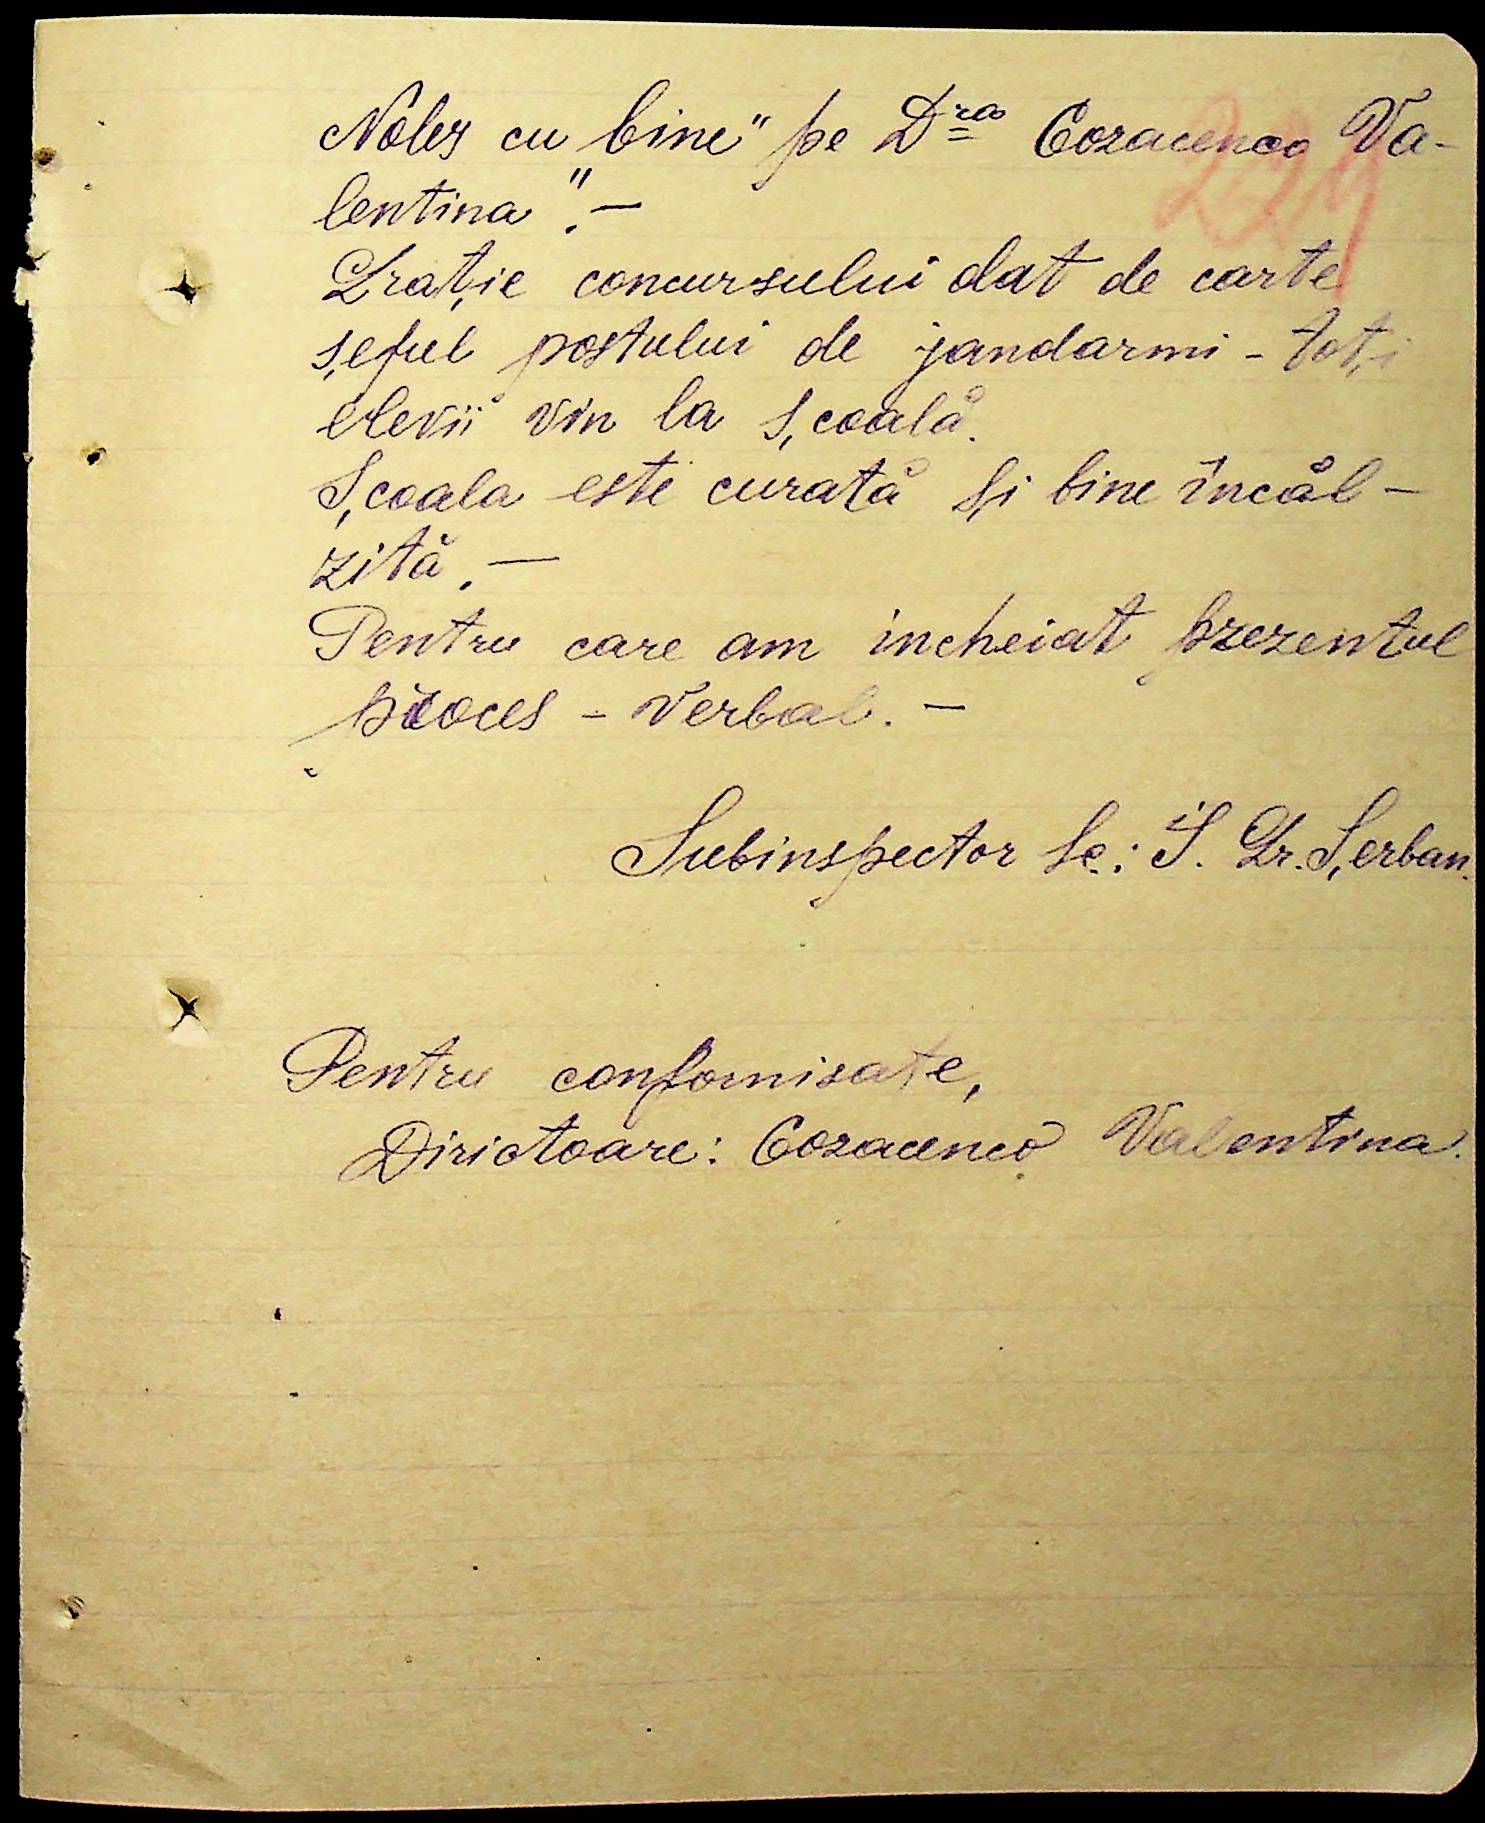 Notez cu „bine" pe D-ra Cozacenco Va-
lentina".—
Grație concursului dat de carte
șeful postului de jandarmi - toți
elevii vin la școală.
Școala este curată și bine încăl-
zită.—
Pentru care am incheiat prezentul
proces - verbal.—
Subinspector Sc.: I. Gr. Șerban.
Pentru confomisate,
Dirictoare: Cozacenco Valentina.